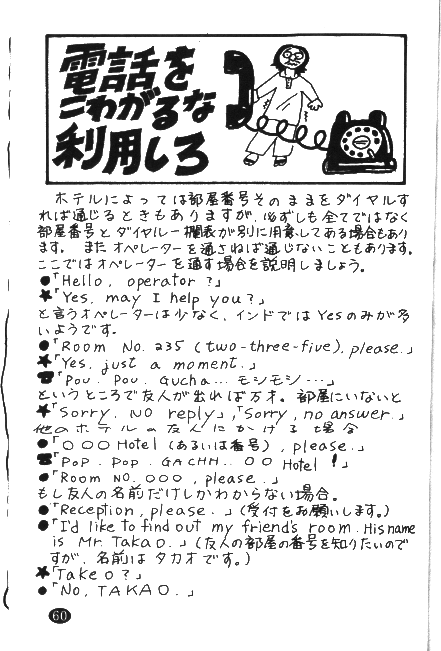 電話を
こわがるな
利用しろ
ホテルによっては部屋番号そのままをダイヤルす
れば通じるときもありますが、必ずしも全てではなく
部屋番号とダイヤル一欄表が別に用意してある場合もあり
ます。またオペレーターを通さねば通じないこともあります。
ここではオペレーターを通す場合を説明しましょう。
●「Hello, operator?」
★「Yes, may I help you?」
と言うオペレーターは少なく、インドではYesのみが多
いようです。
●「Room No. 235 (two-three-five), please.」
★「Yes, just a moment.」
☎「Pou. Pou. Gucha... モシモシ…」
というところで友人が出れば万才。部屋にいないと
★「Sorry. No reply」,「Sorry, no answer.」
他のホテルの友人にかける場合
●「○○○ Hotel (あるいは番号), please.」
☎「POP. POP. GACHH.. ○○ Hotel !」
●「Room NO. ○○○, please.」
もし友人の名前だけしかわからない場合。
●「Reception, please.」(受付をお願いします。)
●「I'd like to find out my friend's room. His name
is Mr. Takao.」(友人の部屋の番号を知りたいので
すが、名前はタカオです。)
★「Takeo?」
●「No, TAKAO.」
60